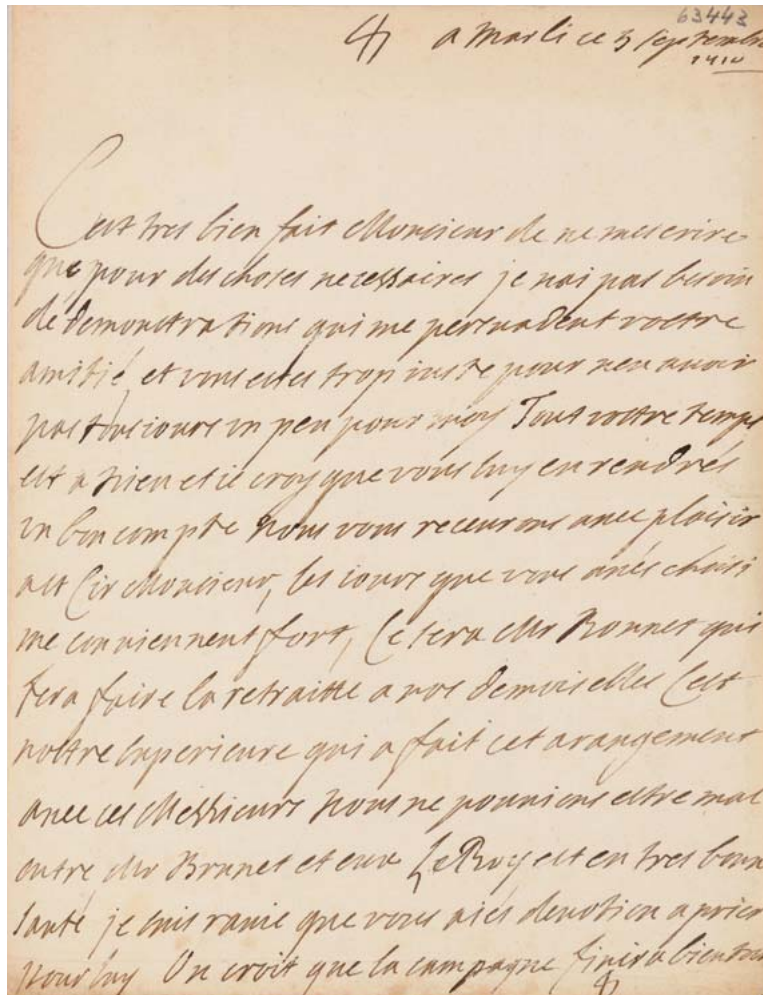 63443
a Marli ce 3 septembre
1710
Cest tres bien fait Monsieur de ne mescrire
que pour des choses necessaires je nai pas besoin
de demonstrations qui me persuadent vostre
amitié et vous estes trop iuste pour nen auoir
pas tousiours un peu pour moy Tout vostre temps
est a Dieu et ie croy que vous luy en rendrés
un bon compte Nous vous receurons auec plaisir
a St Cir Monsieur, les iours que vous aués choisi
me conuiennent fort, Ce sera Mr Bonnet qui
fera faire la retraitte a nos demoiselles Cest
nostre superieure qui a fait cet arangement
auec ces Messieurs Nous ne pouuions estre mal
entre Mr Brunet et eux Le Roy est en tres bonne
santé je suis rauie que vous aiés deuotion a prier
pour luy On croit que la campagne finira bientost